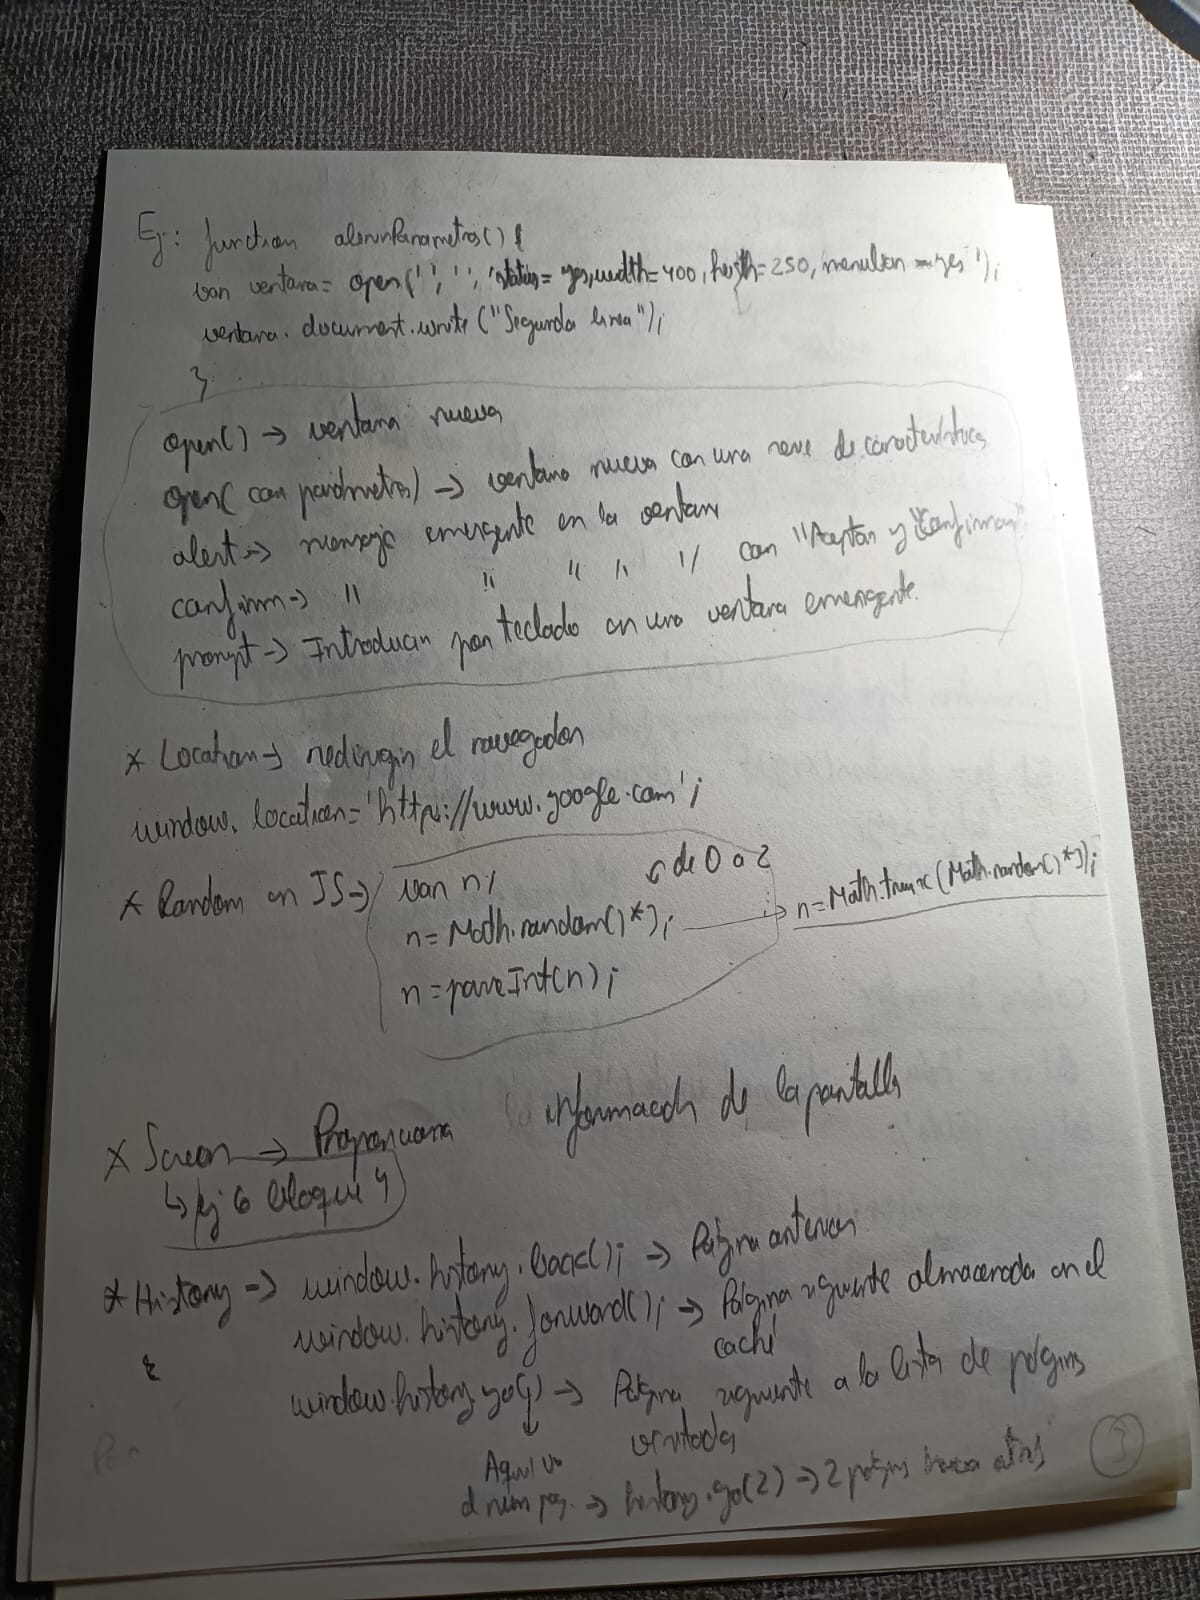 Ej: function abrirParametros() {
var ventana= open('', '', 'status= yes, width=400, heigth=250, menubar=yes');
ventana.document.write("Segunda linea");
}
open() → ventana nueva
open( con parámetros) → ventana nueva con una serie de características
alert → mensaje emergente en la ventana
confirm → " " " " " con "Aceptar y "Confirmar"
prompt → Introducir por teclado en una ventana emergente.
* Location → redirigir el navegador
window.location='https://www.google.com';
de 0 a 2
* Random en JS → var n;
n= Math.random()*3; → n=Math.trunc(Math.random()*3);
n=parseInt(n);
* Screen → Proporciona información de la pantalla
↳ Ej 6 bloque 4
* History → window.history.back(); → Página anterior
window.history.forward(); → Página siguiente almacenada en el
caché
window.history.go() → Página siguiente a la lista de páginas
visitadas
Aquí va
el núm pag. → history.go(2) → 2 páginas hacia atrás
3